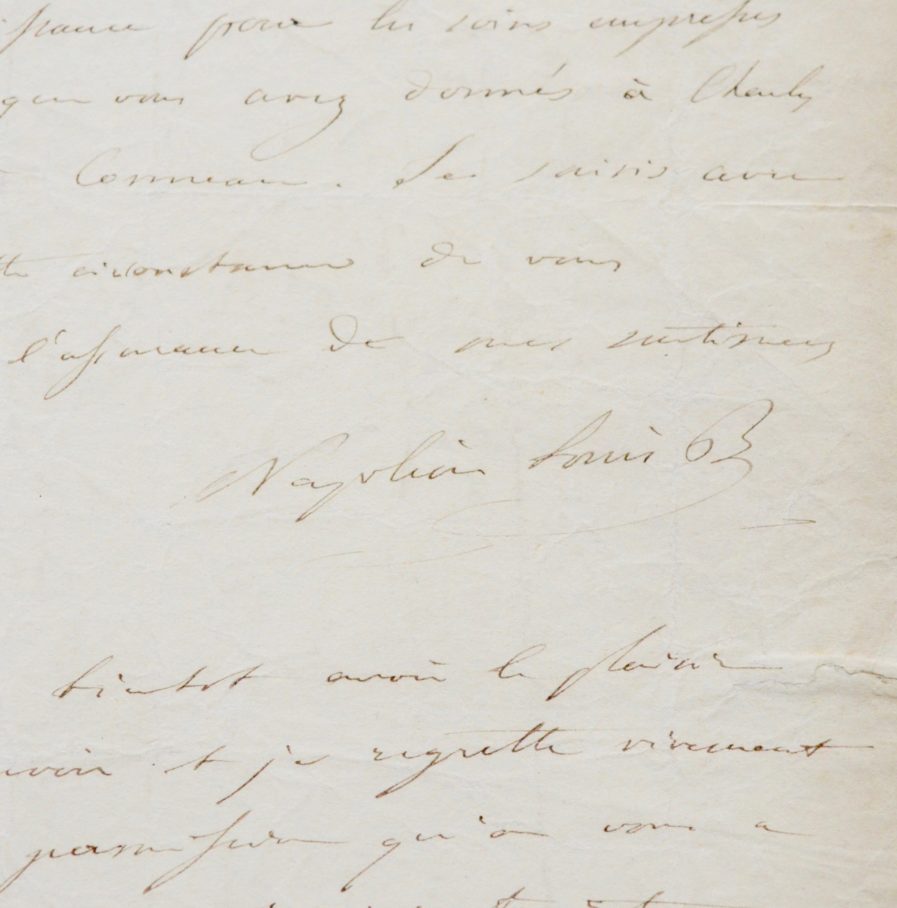 pour les soins empressés
que vous avez donnés à Charles
Conneau. Je saisis avec
circonstance de vous
l'assurance de mes sentimens
Napoléon Louis B
bientot avoir le plaisir
et je regrette vivement
permission qu'on vous a